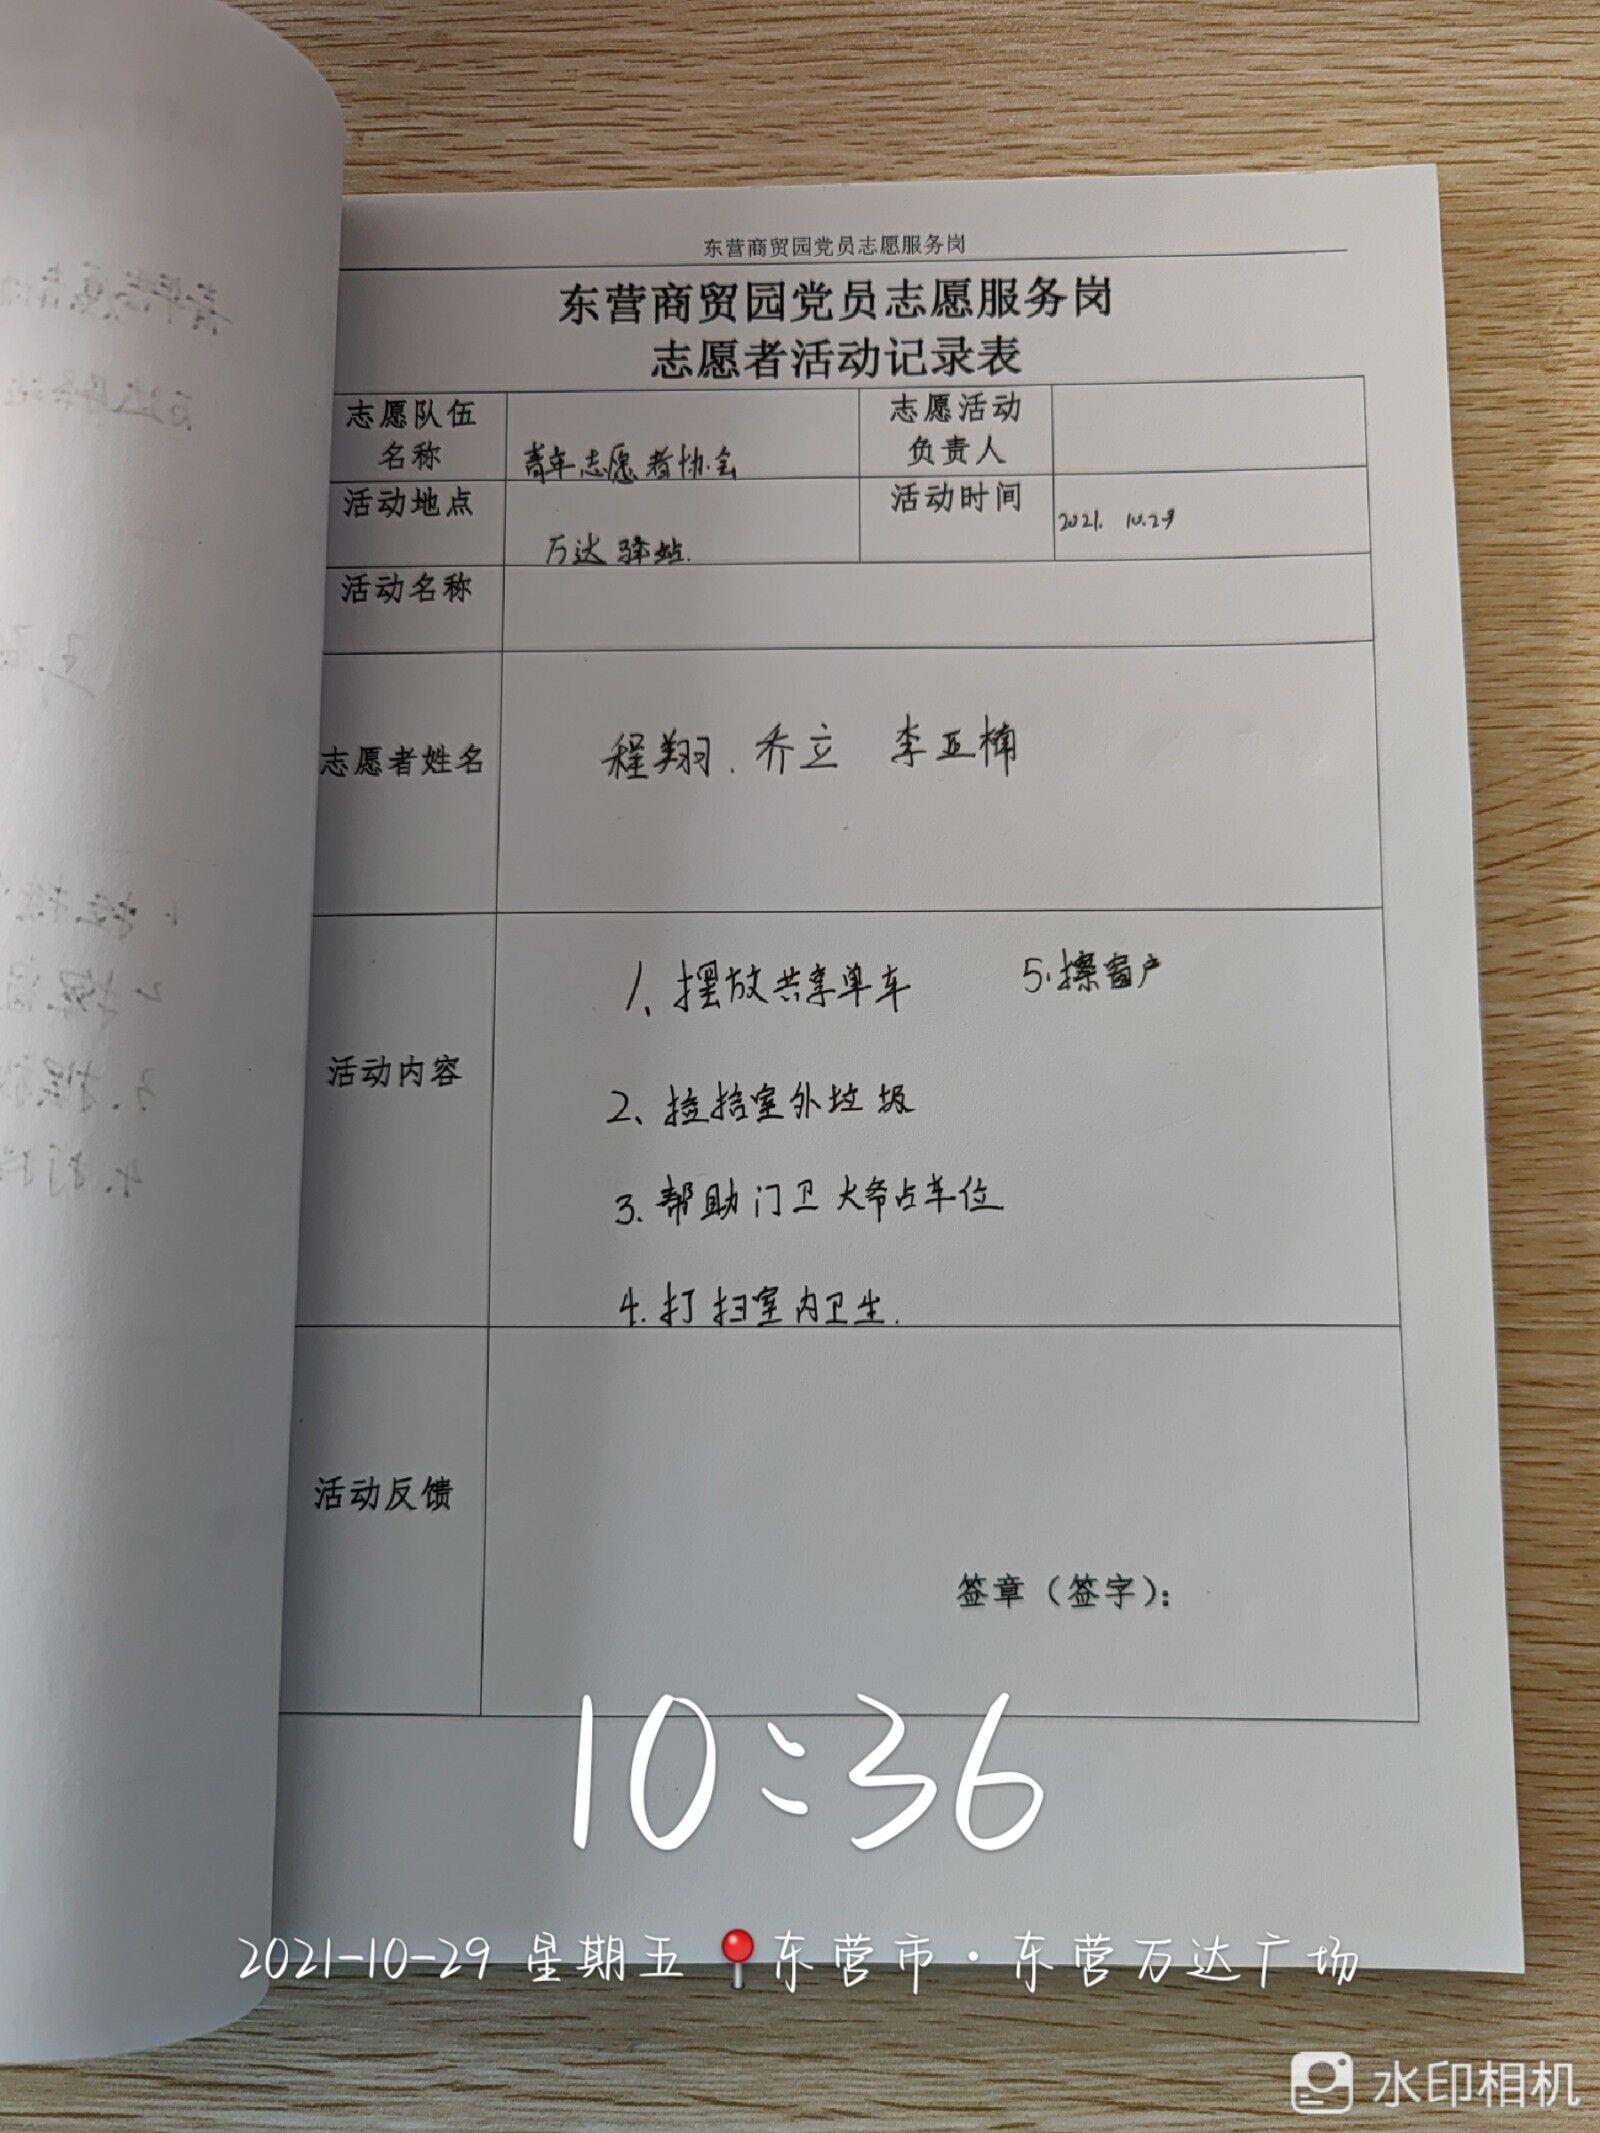 东营商贸园党员志愿服务岗
东营商贸园党员志愿服务岗
志愿者活动记录表
志愿队伍
名称
青年志愿者协会
志愿活动
负责人
活动地点
万达驿站.
活动时间
2021. 10.29
活动名称
志愿者姓名
程翔.乔立 李亚楠
活动内容
1、摆放共享单车
5.擦窗户
2、捡拾室外垃圾
3.帮助门卫大爷占车位
4.打扫室内卫生.
活动反馈
签章（签字）：
10:36
2021-10-29 星期五 东营市·东营万达广场
水印相机